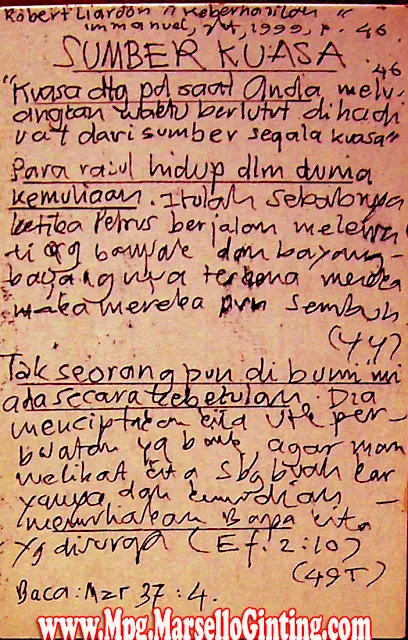 Robert Liardon "Keberhasilan"
Immanuel, Jkt, 1999, p. 46
SUMBER KUASA
46
"Kuasa dtg pd saat Anda melu-
angkan waktu berlutut dihadi
rat dari sumber segala kuasa"
Para rasul hidup dlm dunia
kemuliaan. Itulah sebabnya
ketika Petrus berjalan melewa
ti org banyak dan bayang-
bayang nya terkena mereka
maka mereka pun sembuh
(44)
Tak seorang pun di bumi ini
ada secara kebetulan. Dia
menciptakan kita utk per-
buatan yg baik, agar man
melihat kita sbg buah kar
yanya dan kemudian
memuliakan Bapa kita
yg disurga (Ef. 2:10)
(49T)
Baca: Mzr 37:4.
www.Mpg.MarselloGinting.com